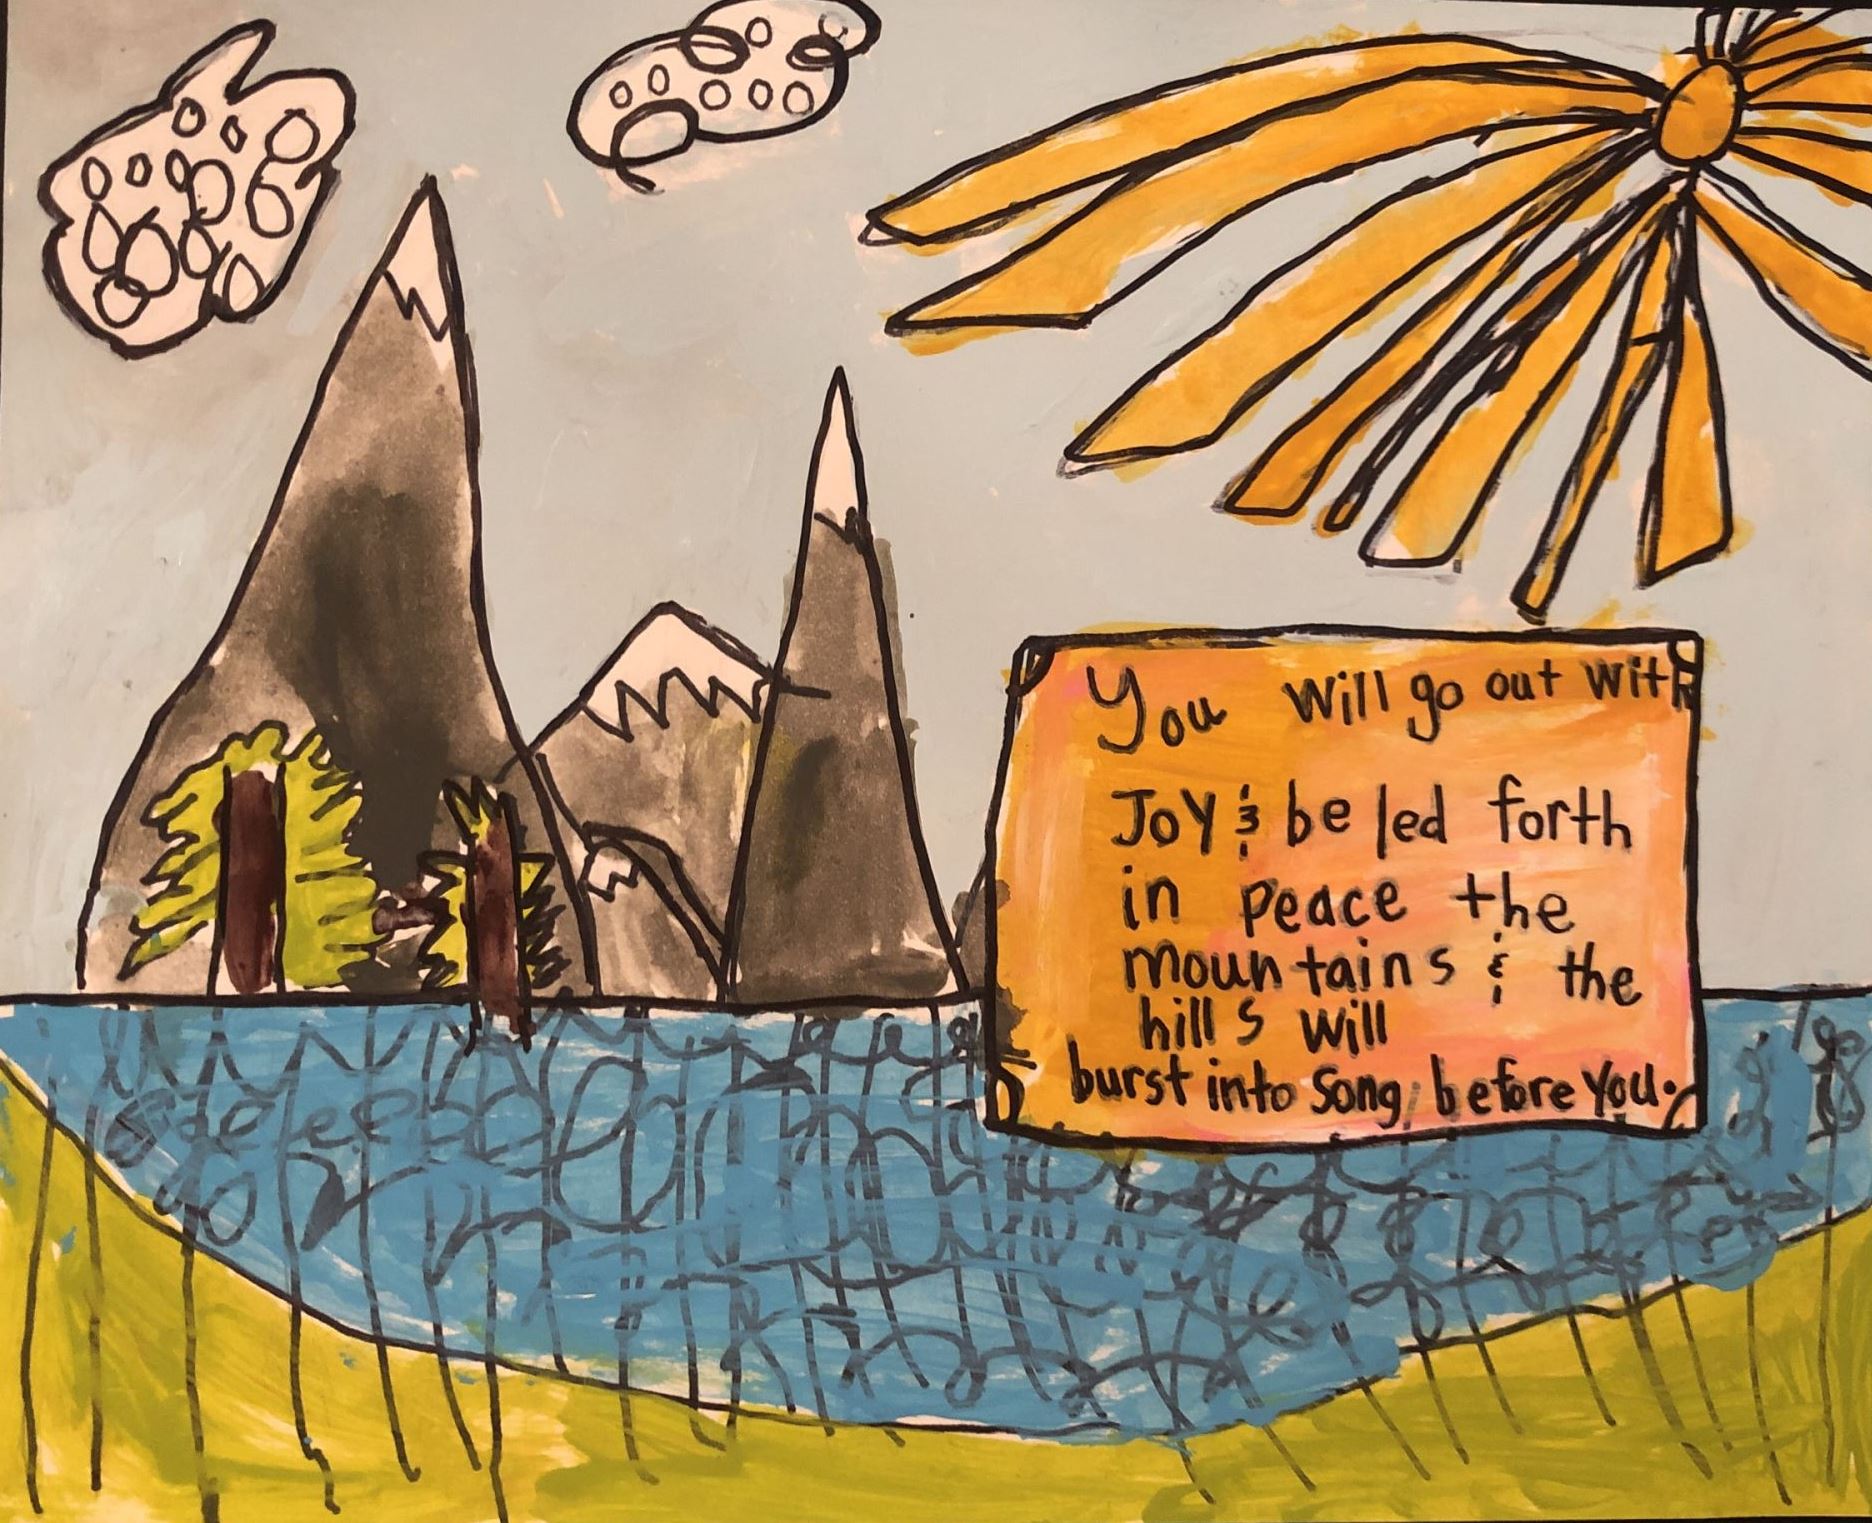 You will go out with
Joy & be led forth
in peace the
mountains & the
hills will
burst into song, before you.